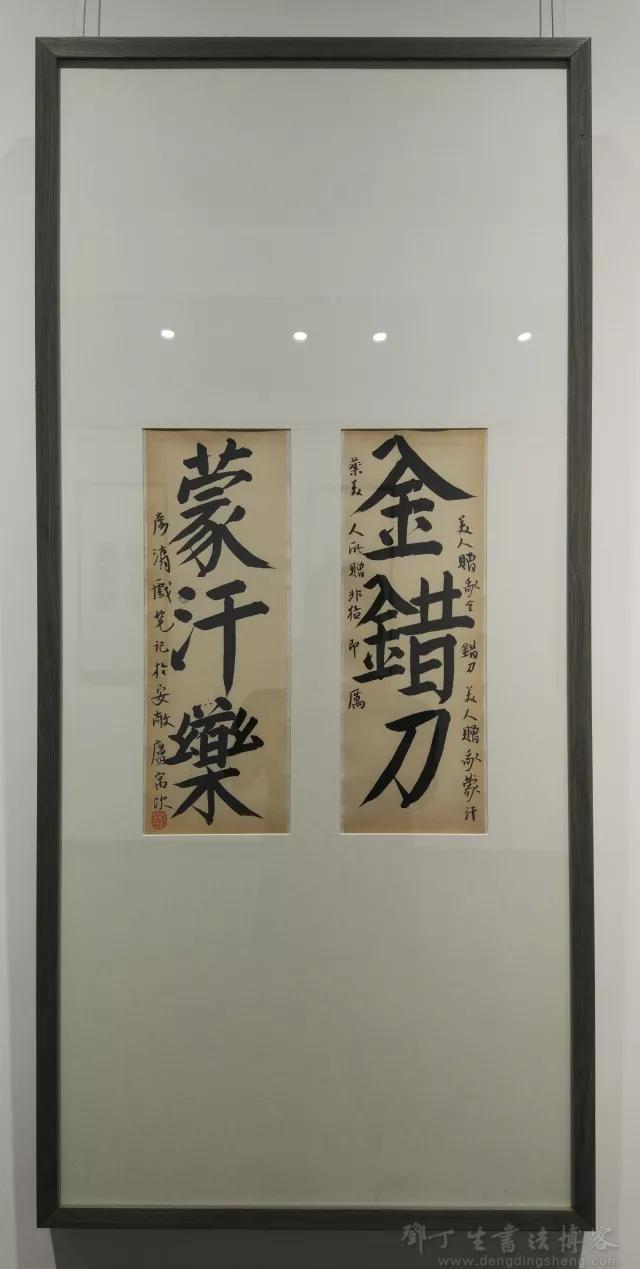 金錯刀
美人贈我金錯刀美人贈我蒙汗
藥美人所贈非即厲
蒙汗藥
戲筆記於安敞廬
鄧丁生書法博客
www.dengdingsheng.com